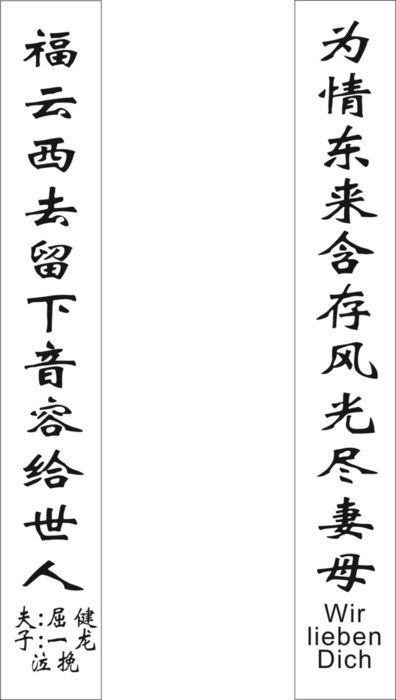 为情东来含存风光尽妻母
Wir
lieben
Dich
福云西去留下音容给世人
夫:屈健
子:一龙
泣挽